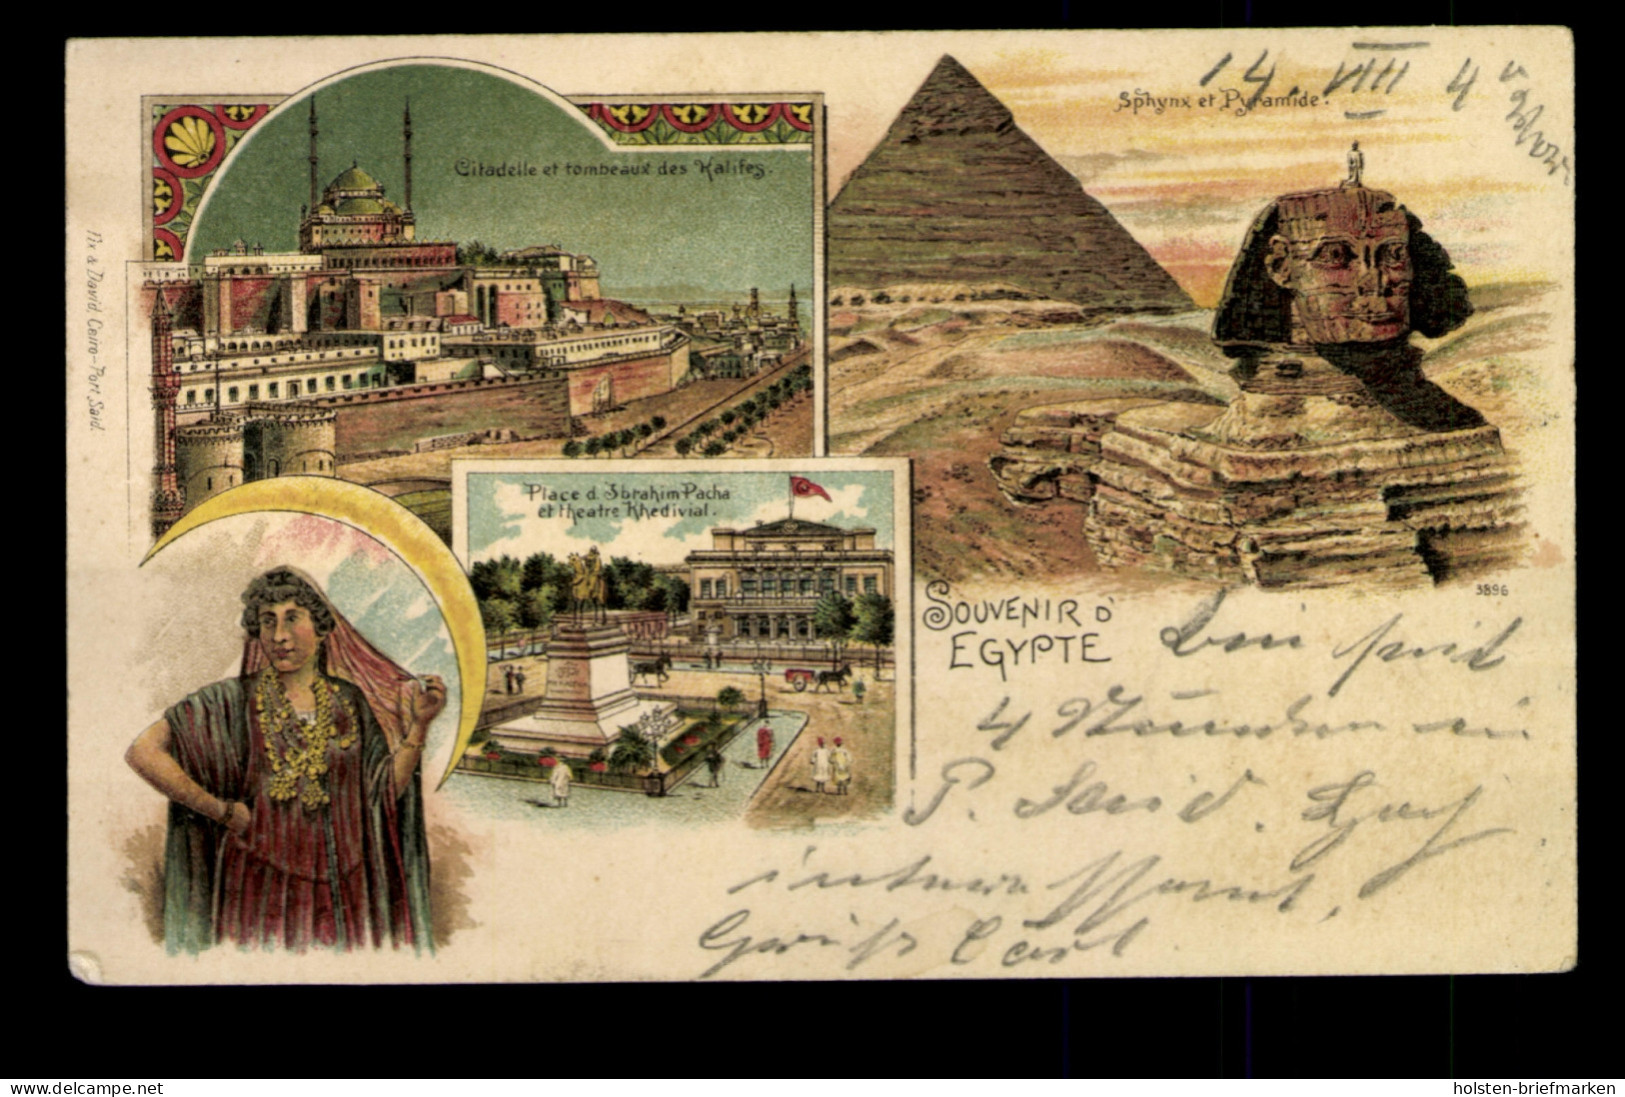 14. VIII 4
Sphynx et Pyramide.
Citadelle et tombeaux des Kalifes.
Fix & David, Cairo-Port Said.
Place d. Ibrahim-Pacha
et theatre Khedivial.
3896
SOUVENIR D'
EGYPTE
Bin seit
4 Stunden in
P. Said.
Gruß Carl
delcampe.net
holsten-briefmarken